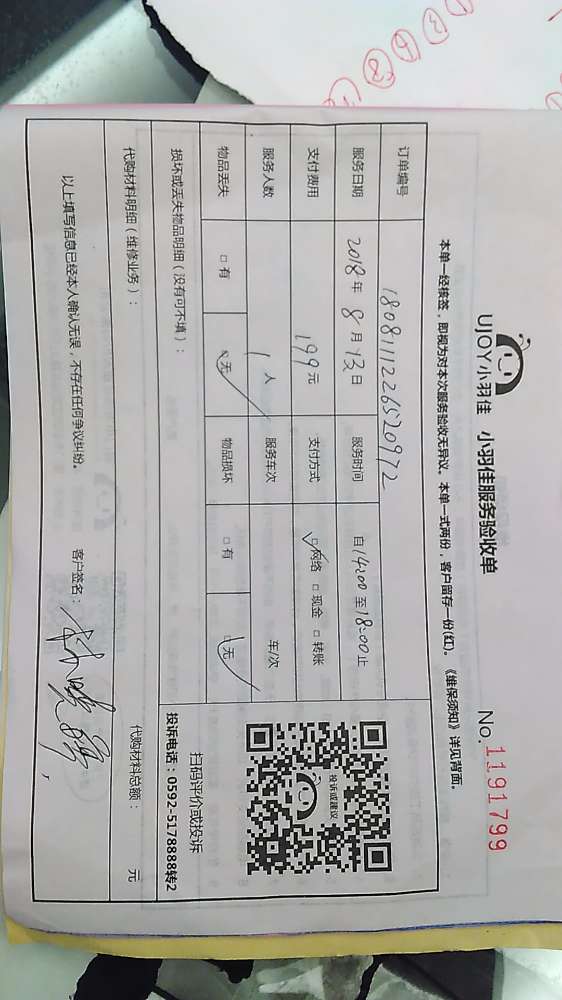 UJOY小羽佳 小羽佳服务验收单 No. 1191799
本单一经接签，即视为对本次服务验收无异议。本单一式两份，客户留存一份(红)。《维保须知》详见背面。
订单编号 180811122652097​2
服务日期 2018年8月13日 服务时间 自14:00至18:00止
支付费用 199元 支付方式 □网络 □现金 □转账
服务人数 1人 服务车次 车/次
物品丢失 □有 □无 物品损坏 □有 □无
投诉或建议
扫码评价或投诉
投诉电话：0592-5178888转2
损坏或丢失物品明细（没有可不填）：
代购材料明细（维修业务）： 代购材料总额： 元
以上填写信息已经本人确认无误，不存在任何争议纠纷。 客户签名：